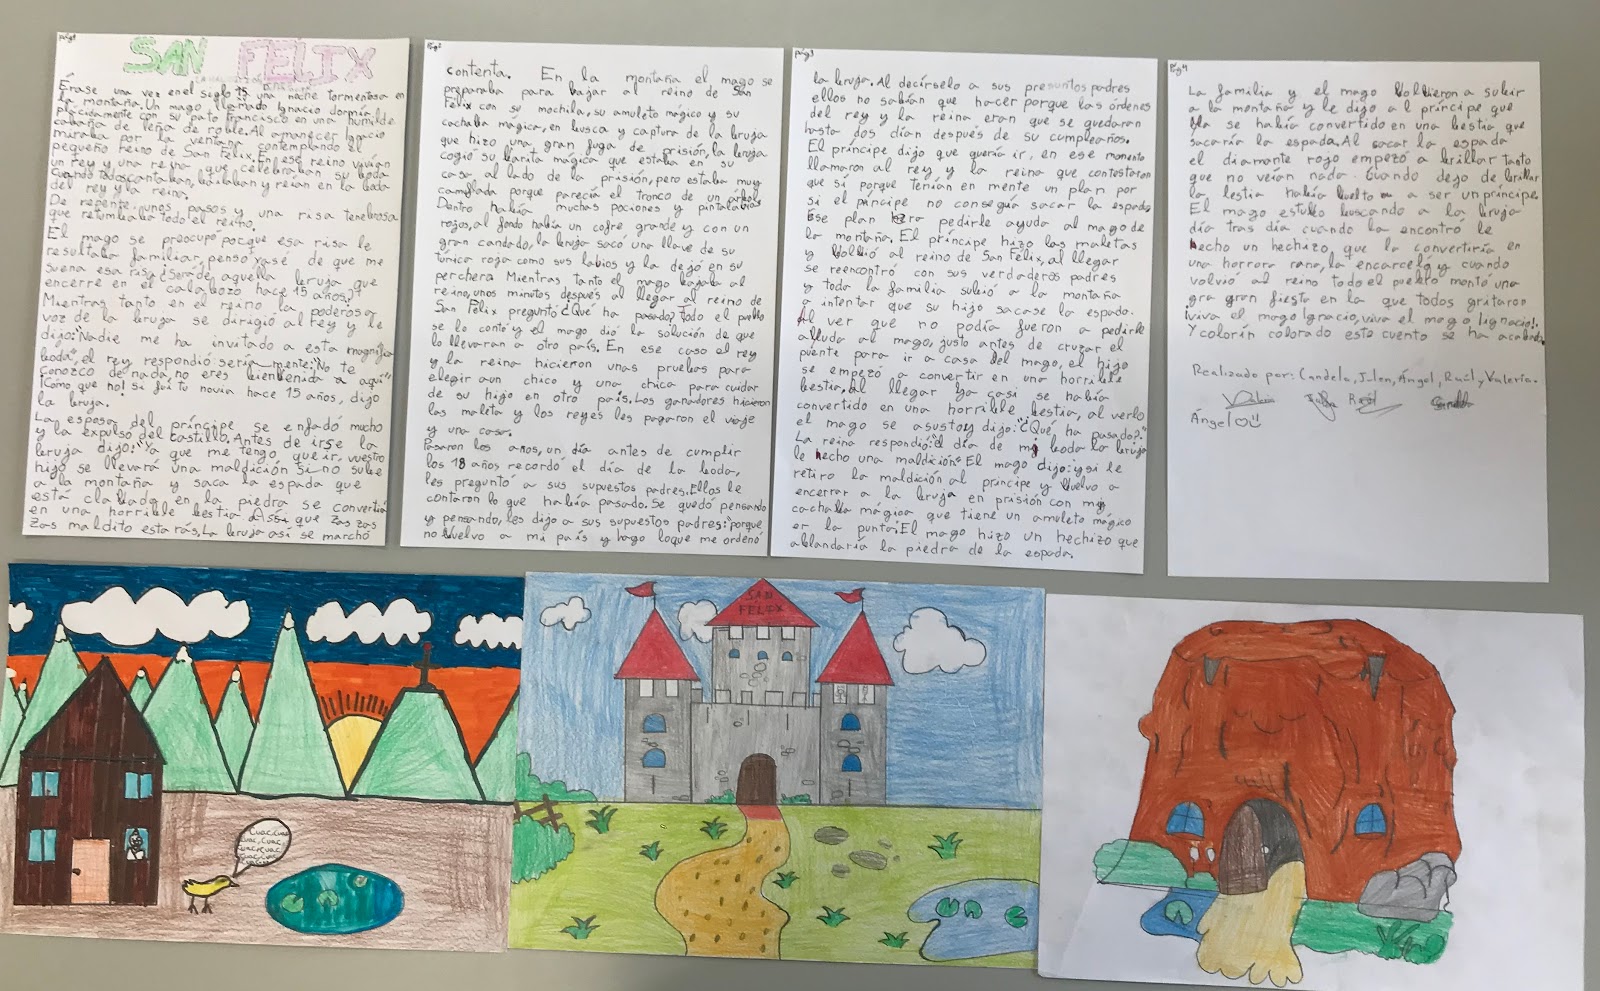 pág1
SAN FELIX
LA MALDICIÓN
Érase una vez en el siglo 15 una noche tormentosa en
la montaña. Un mago llamado Ignacio dormía
plácidamente con su pato Francisco en una humilde
cabaña de leña de roble. Al amanecer Ignacio
miraba por la ventana contemplando el
pequeño reino de San Félix. En ese reino vivían
un rey y una reina que celebraban su boda
cuando todos cantaban, bailaban y reían en la boda
del rey y la reina.
De repente unos pasos y una risa tenebrosa
que retumbaba todo el reino.
El mago se preocupó porque esa risa le
resultaba familiar, pensó ¿asé de que me
suena esa risa? ¿Será de aquella bruja que
encerre en el calabozo hace 15 años?
Mientras tanto en el reino la poderosa
voz de la bruja se dirigió al rey y le
dijo: Nadie me ha invitado a esta magnífica
boda", el rey respondió seria mente: "No te
conozco de nada, no eres bienbenida a aquí"
¡Cómo que no! si fui tu novia hace 15 años, dijo
la bruja.
La esposa del príncipe se enfadó mucho
y la expulsó del castillo. Antes de irse la
bruja dijo: "Ya que me tengo que ir, vuestro
hijo se llevará una maldición si no sube
a la montaña y saca la espada que
está clabada en la piedra se convertirá
en una horrible bestia. Assi que zas zas
zas maldito estarás, La bruja asi se marchó
Pág2
contenta. En la montaña el mago se
preparaba para bajar al reino de San
Félix con su mochila, su amuleto mágico y su
cachaba mágica, en busca y captura de la bruja
que hizo una gran fuga de prisión, la bruja
cogió su barita mágica que estaba en su
casa, al lado de la prisión, pero estaba muy
camuflada porque parecía el tronco de un árbol
Dentro había muchas pociones y pintalabios
rojos, al fondo había un cofre grande y con un
gran candado, la bruja sacó una llave de su
túnica roja como sus labios y la dejó en su
perchero. Mientras tanto el mago bajaba al
reino, unos minutos después al llegar al reino de
San Félix preguntó ¿Qué ha pasado? Todo el pueblo
se lo contó y el mago dió la solución de que
lo llevaran a otro país. En ese caso el rey
y la reina hicieron unas pruebas para
elegir aun chico y una chica para cuidar
de su hijo en otro país. Los ganadores hicieron
las maleta y los reyes les pagaron el viaje
y una casa.
Pasaron los años, un día antes de cumplir
los 18 años recordó el día de la boda,
les preguntó a sus supuestos padres. Ellos le
contaron lo que había pasado. Se quedó pensando
y pensando, les dijo a sus supuestos padres: "porque
no vuelvo a mi país y hago loque me ordenó
pág3
la bruja. Al decírselo a sus presuntos padres
ellos no sabían que hacer porque las órdenes
del rey y la reina eran que se quedaran
hasta dos dían después de su cumpleaños.
El príncipe dijo que quería ir, en ese momento
llamaron al rey, y la reina que contestaron
que si porque tenían en mente un plan por
si el príncipe no conseguía sacar la espada.
Ese plan era pedirle ayuda al mago de
la montaña. El príncipe hizo las maletas
y volvió al reino de San Félix, al llegar
se reencontró con sus verdaderos padres
y toda la familia subió a la montaña
a intentar que su hijo sacase la espada.
Al ver que no podía fueron a pedirle
alluda al mago, justo antes de cruzar el
puente para ir a casa del mago, el hijo
se empezó a convertir en una horrible
bestia. Al llegar ya casi se había
convertido en una horrible bestia, al verlo
el mago se asustoy dijo: "¿Qué ha pasado?"
La reina respondió: "el día de mi boda la bruja
le hecho una maldición" El mago dijo: ¿y si le
retiro la maldición al príncipe y vuelvo a
encerrar a la bruja en prisión con mi
cachaba mágica que tiene un amuleto mágico
en la punta? El mago hizo un hechizo que
ablandaría la piedra de la espada.
Pág4
La familia y el mago volvieron a subir
a la montaña y le dijo al príncipe que
ya se había convertido en una bestia que
sacaría la espada. Al sacar la espada
el diamante rojo empezó a brillar tanto
que no veían nada. Cuando dejo de brillar
la bestia había vuelto a ser un príncipe.
El mago estubo buscando a la bruja
día tras día cuando la encontró le
hecho un hechizo, que la convertiría en
una horrora rana, la encarceló y cuando
volvió al reino todo el pueblo montó una
gra gran fiesta en la que todos gritaron
¡viva el mago Ignacio, viva el mago Iignacio!.
Y colorín colorado este cuento se ha acabado.
Realizado por: Candela, Julen, Ángel, Raúl y Valeria.
Ángel
Cuac, cuac
cuac, cuac,
SAN
FELIX